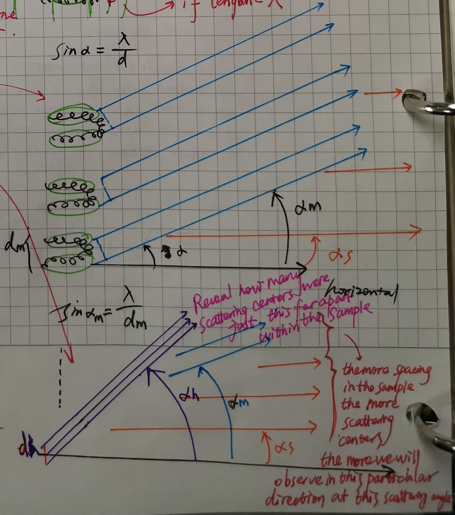 if length = λ
sin α = λ/d
αm
dm
α
αs
sin αm = λ/dm
horizontal
Reveal how many
scattering centers were
just this far apart
within the sample
αh
αm
αs
the more spacing
in the sample
the more
scattering
centers
the more we will
observe in this particular
direction at this scattering angle